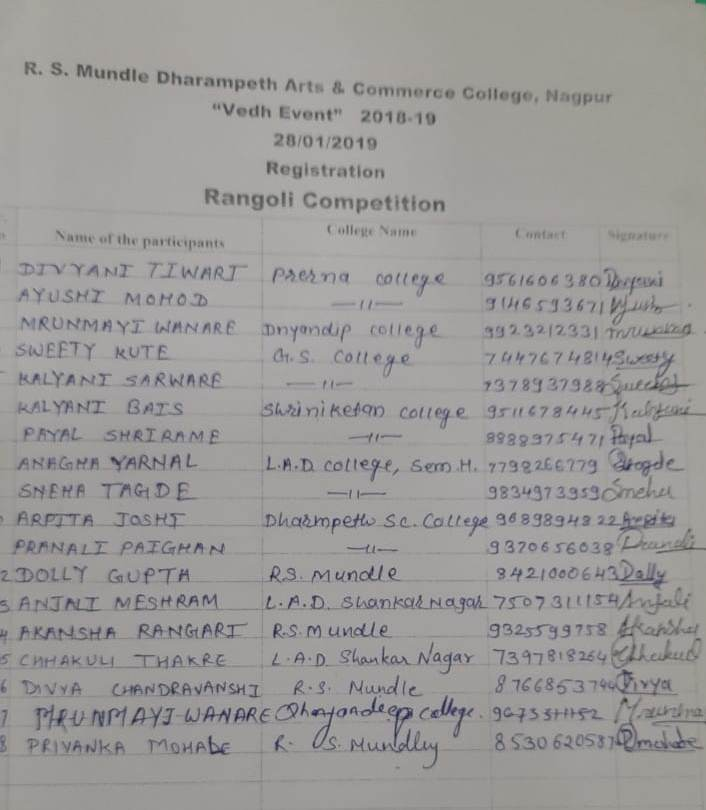 R. S. Mundle Dharampeth Arts & Commerce College, Nagpur
"Vedh Event" 2018-19
28/01/2019
Registration
Rangoli Competition
Name of the participants College Name Contact Signature
DIVYANI TIWARI Prerna college 9561606380
AYUSHI MOHOD —11— 9146593671
MRUNMAYI WANARE Dnyandip college 9923212331
SWEETY KUTE G.S. College 7447674814 Sweety
KALYANI SARWARE —11— 7378937988
KALYANI BAIS Shriniketan college 9511678445 Kalyani
PAYAL SHRIRAME —11— 8888975471 Payal
ANAGHA YARNAL L.A.D. college, Sem. H. 7798266779
SNEHA TAGDE —11— 9834973959 Sneha
ARPITA JOSHI Dharmpeth Sc. College 9689894822 Arpita
PRANALI PAIGHAN —11— 9370656038 Pranali
2 DOLLY GUPTA R.S. Mundle 8421000643 Dolly
3 ANJALI MESHRAM L.A.D. Shankar Nagar 7507311154 Anjali
4 AKANSHA RANGARI R.S. Mundle 9325599758 Akansha
5 CHHAKULI THAKRE L.A.D. Shankar Nagar 7397818264 Chhakuli
6 DIVYA CHANDRAVANSHI R.S. Mundle Divya
7 MRUNMAYI WANARE Dhnyandeep College.
8 PRIYANKA MOHABE R. S. Mundley 8530620587 Pmohabe